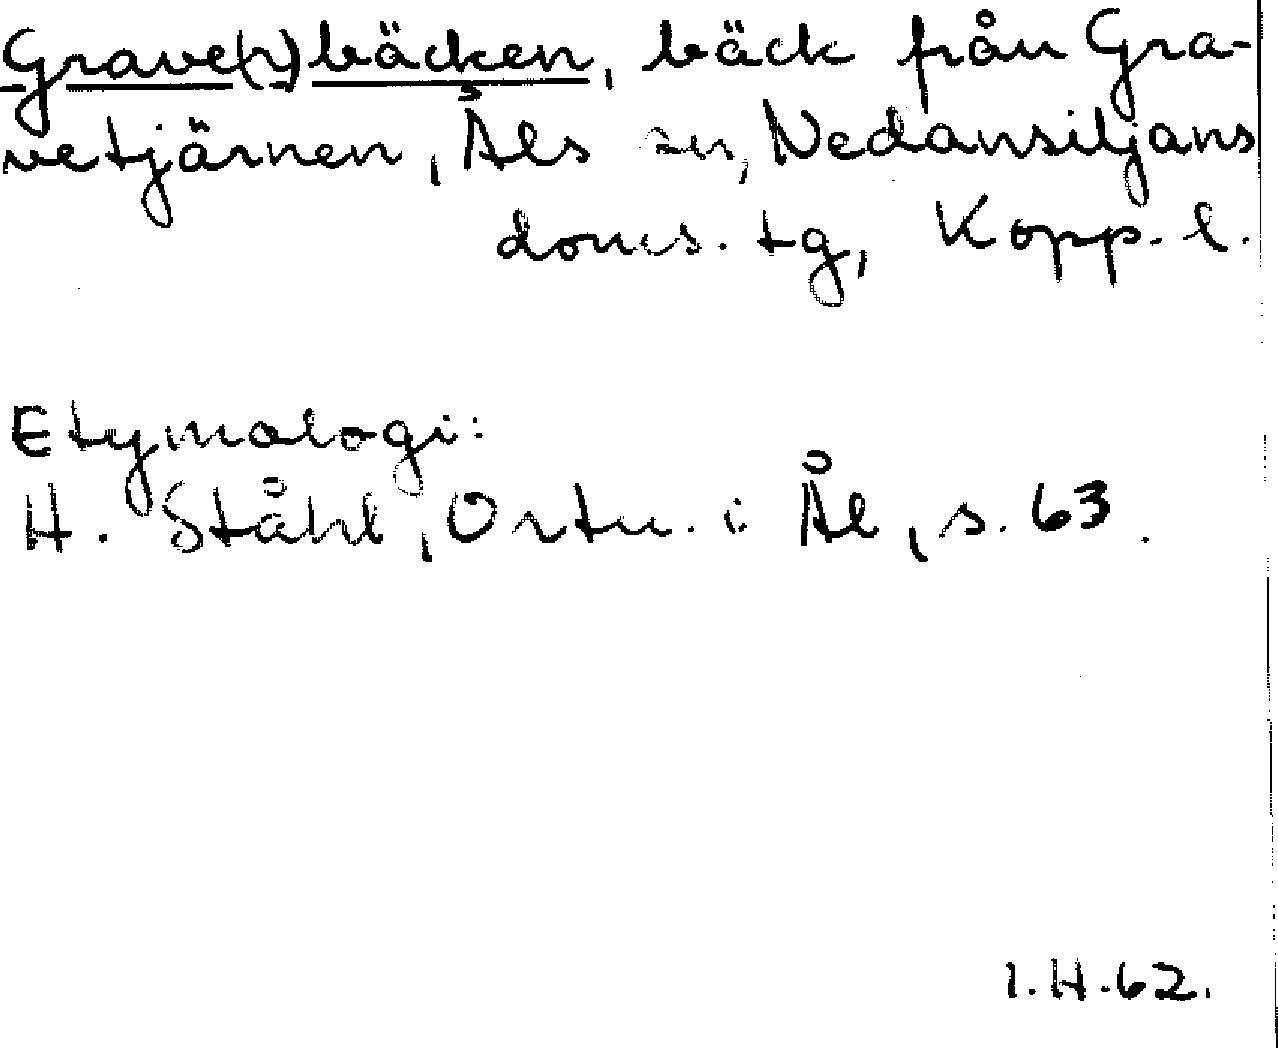 Grave(n)bäcken, bäck från Gra-
vetjärnen, Åls sn, Nedansiljans
doms. tg, Kopp. l.
Etymologi:
H. Ståhl, Ortn. i Ål, s. 63.
I.H.62.